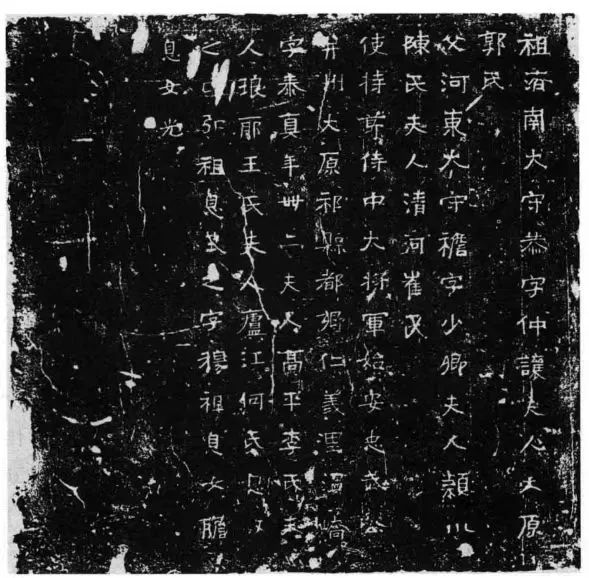 祖濟南大守恭字仲讓夫人大原
郭氏
父河東大守襜字少卿夫人潁川
陳氏夫人清河崔氏
使持節侍中大將軍始安忠武公
并州大原祁縣都鄉仁義里溫嶠
字泰真年卌二夫人高平李氏夫
人琅耶王氏夫人廬江何氏息放
之字弘祖息式之字穆祖息女膽
息女光